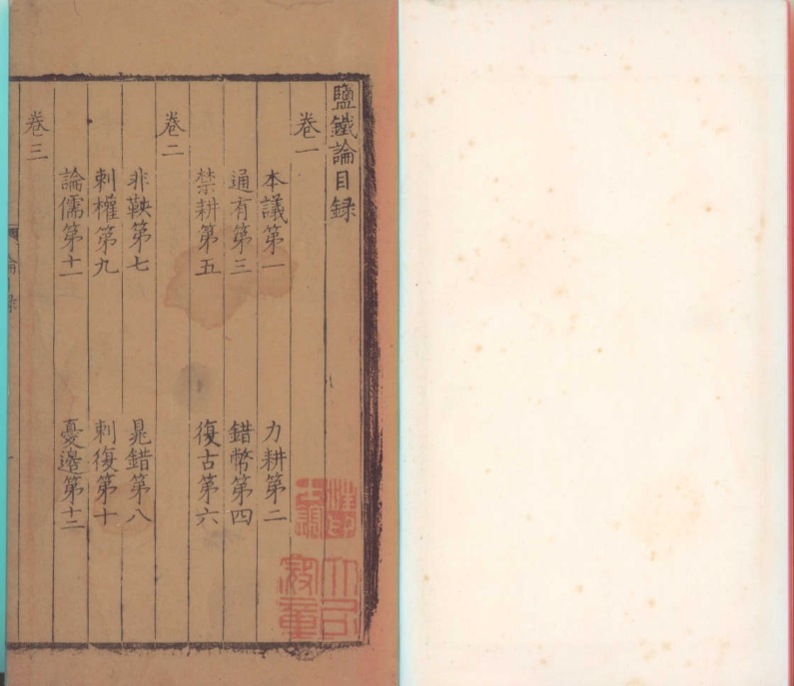 鹽鐵論目録
卷一
本議第一
力耕第二
通有第三
錯幣第四
禁耕第五
復古第六
卷二
非鞅第七
晁錯第八
刺權第九
刺復第十
論儒第十一
憂邊第十二
卷三